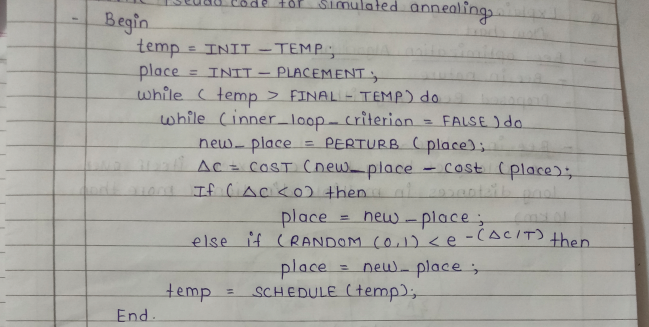 Pseudo code for simulated annealing.
- Begin
temp = INIT - TEMP;
place = INIT - PLACEMENT;
while ( temp > FINAL - TEMP) do
while (inner_loop_criterion = FALSE) do
new_place = PERTURB (place);
ΔC = COST (new_place - cost (place);
If (ΔC<0) then
place = new_place;
else if (RANDOM (0,1) < e -(ΔC/T) then
place = new_place;
temp = SCHEDULE (temp);
End.